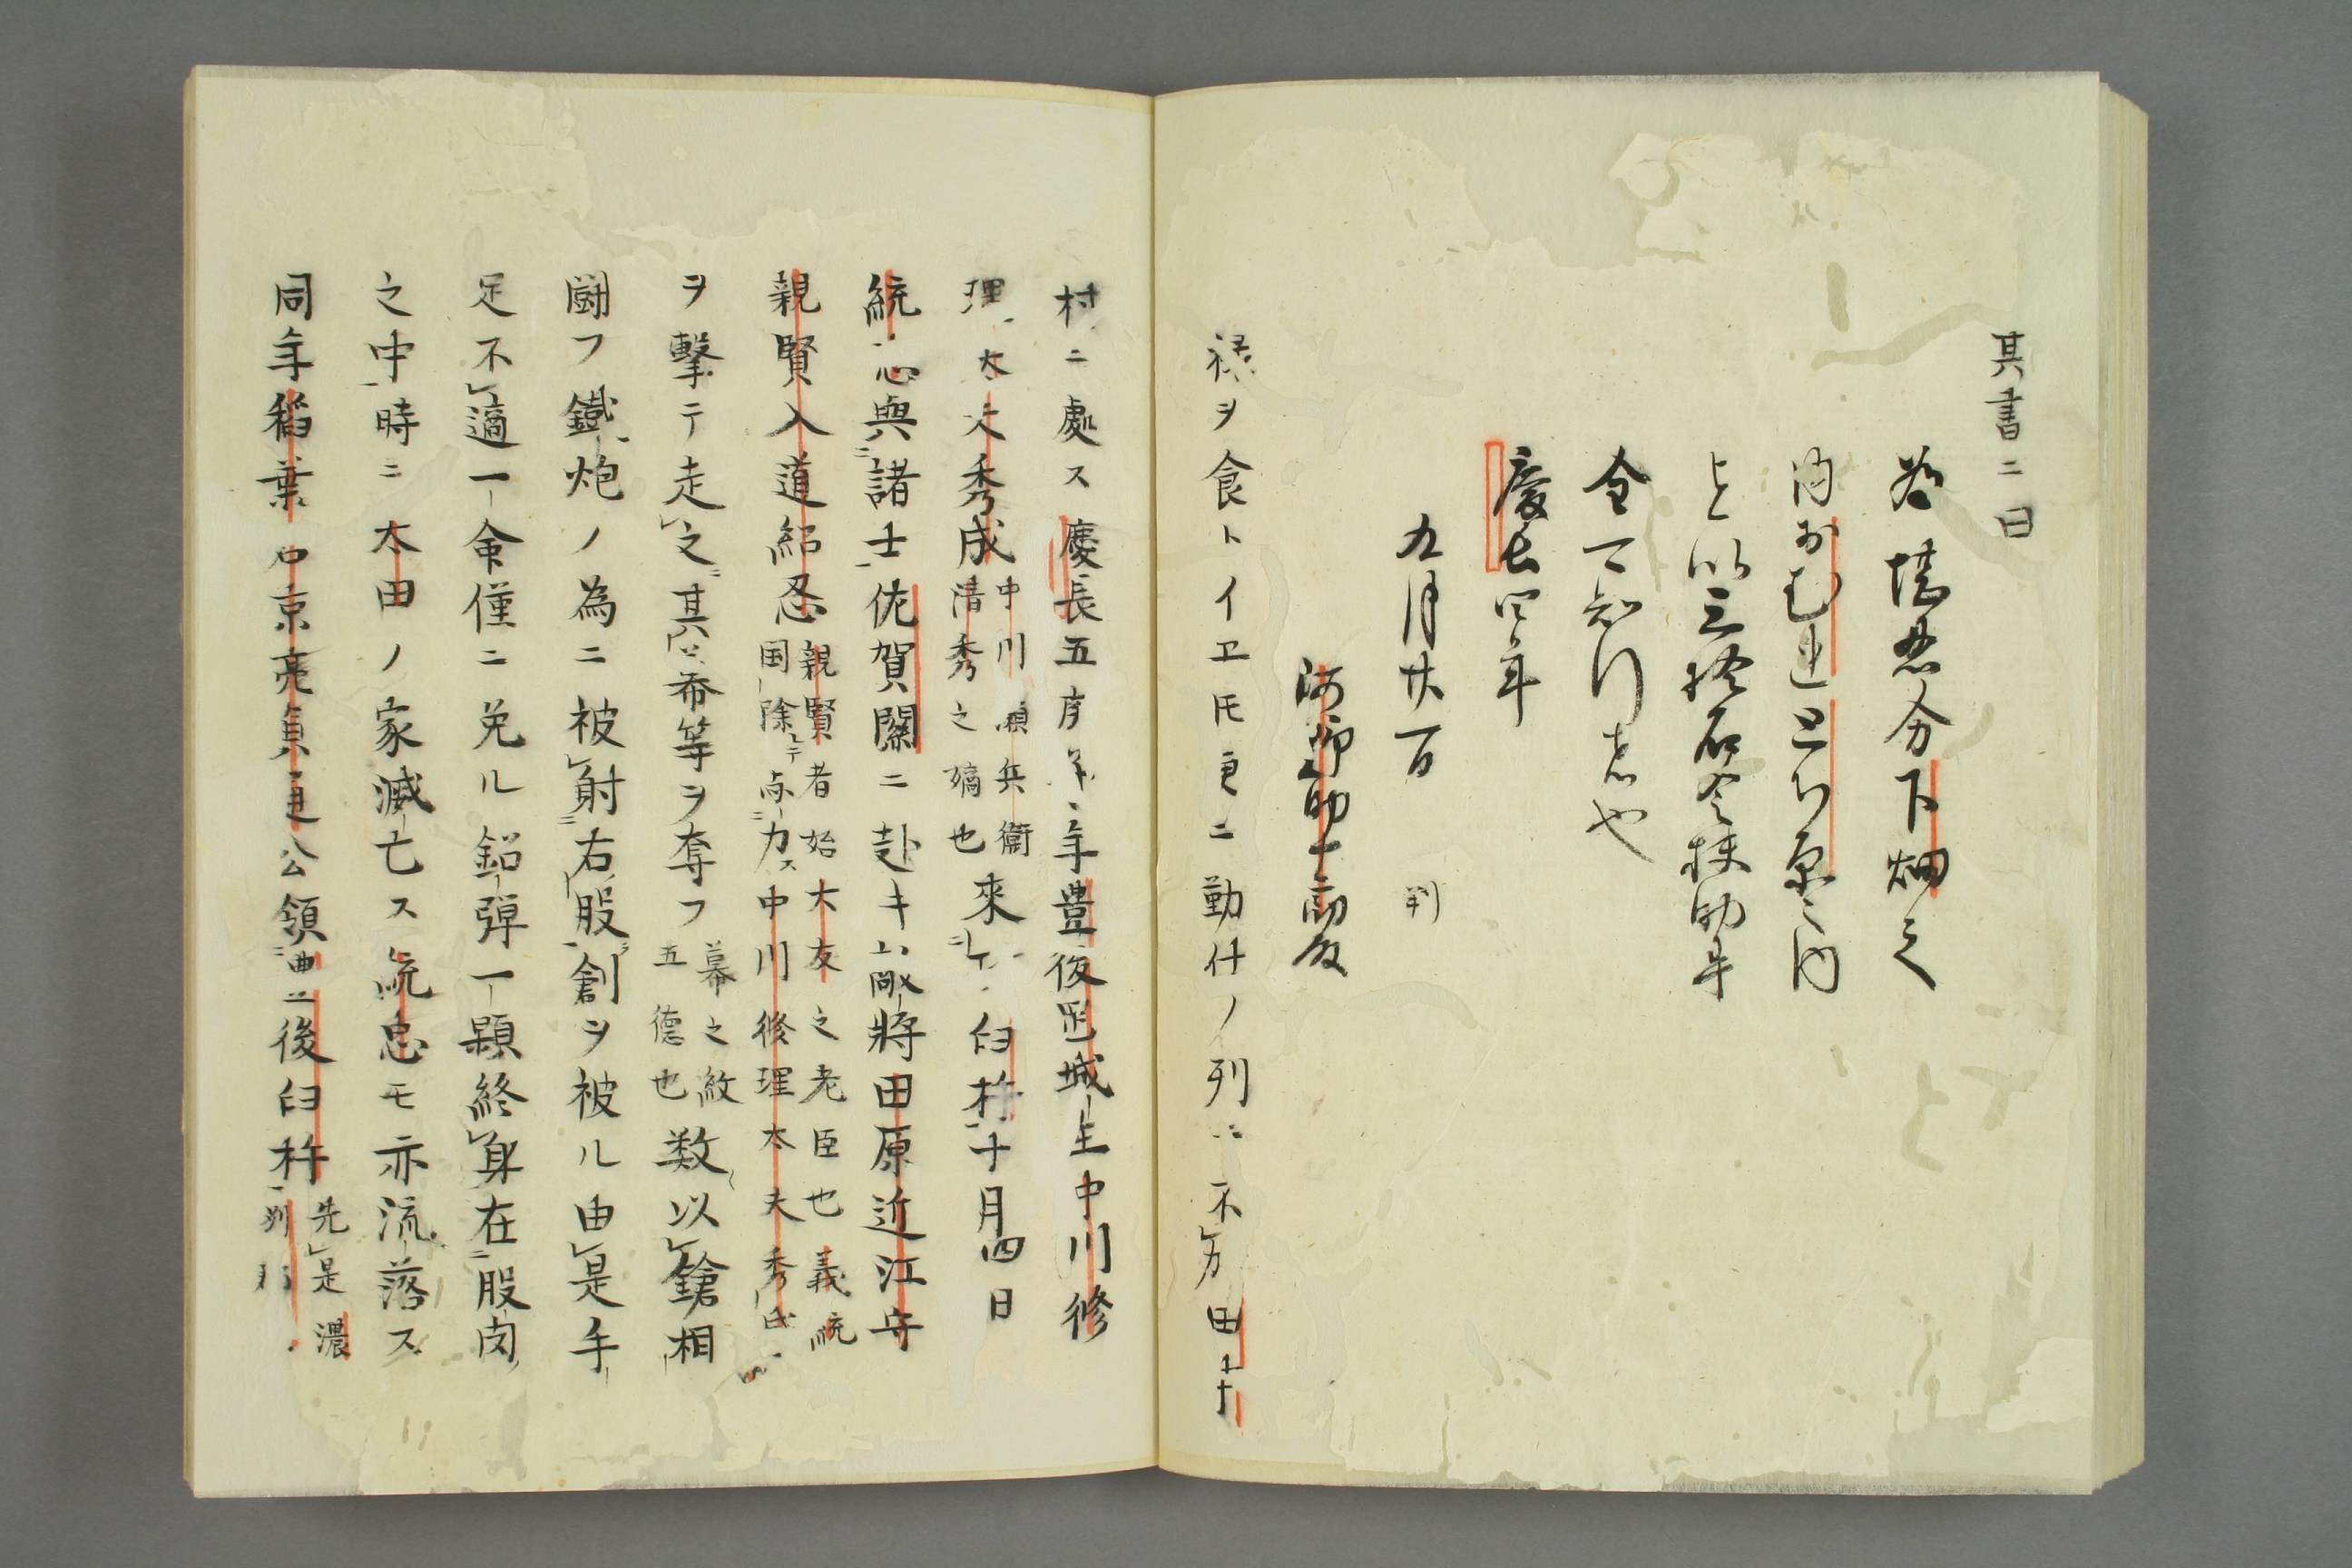 其書ニ曰
為堪忍分下畑之
内お
上以三拾石令扶助畢
全可知行者也
慶長四年
九月廿一日 判
禄ヲ食トイヱ𪜈更ニ勤仕ノ列ニ不
村ニ處ス慶長五庚
年豊後岡城主中川修
理太夫秀成
中川瀬兵衛
清秀之嫡也
來
臼杵十月四日
統忠與諸士佐賀關ニ赴キ
敵將田原近江守
親賢入道紹忍
親賢者始大友之老臣也義統
国除テ与力ス中川修理太夫秀
ヲ擊テ走之其
希等ヲ奪フ
幕之紋
五德也
数以鎗相
闘フ鐵炮ノ為ニ被射右股創ヲ被ル由是手
足不適一命僅ニ免ル鉛弾一顆終身在股肉
之中時ニ太田ノ家滅亡ス統忠モ亦流落ス
同年稻葉右京亮貞通公領
豊後臼杵
先是濃